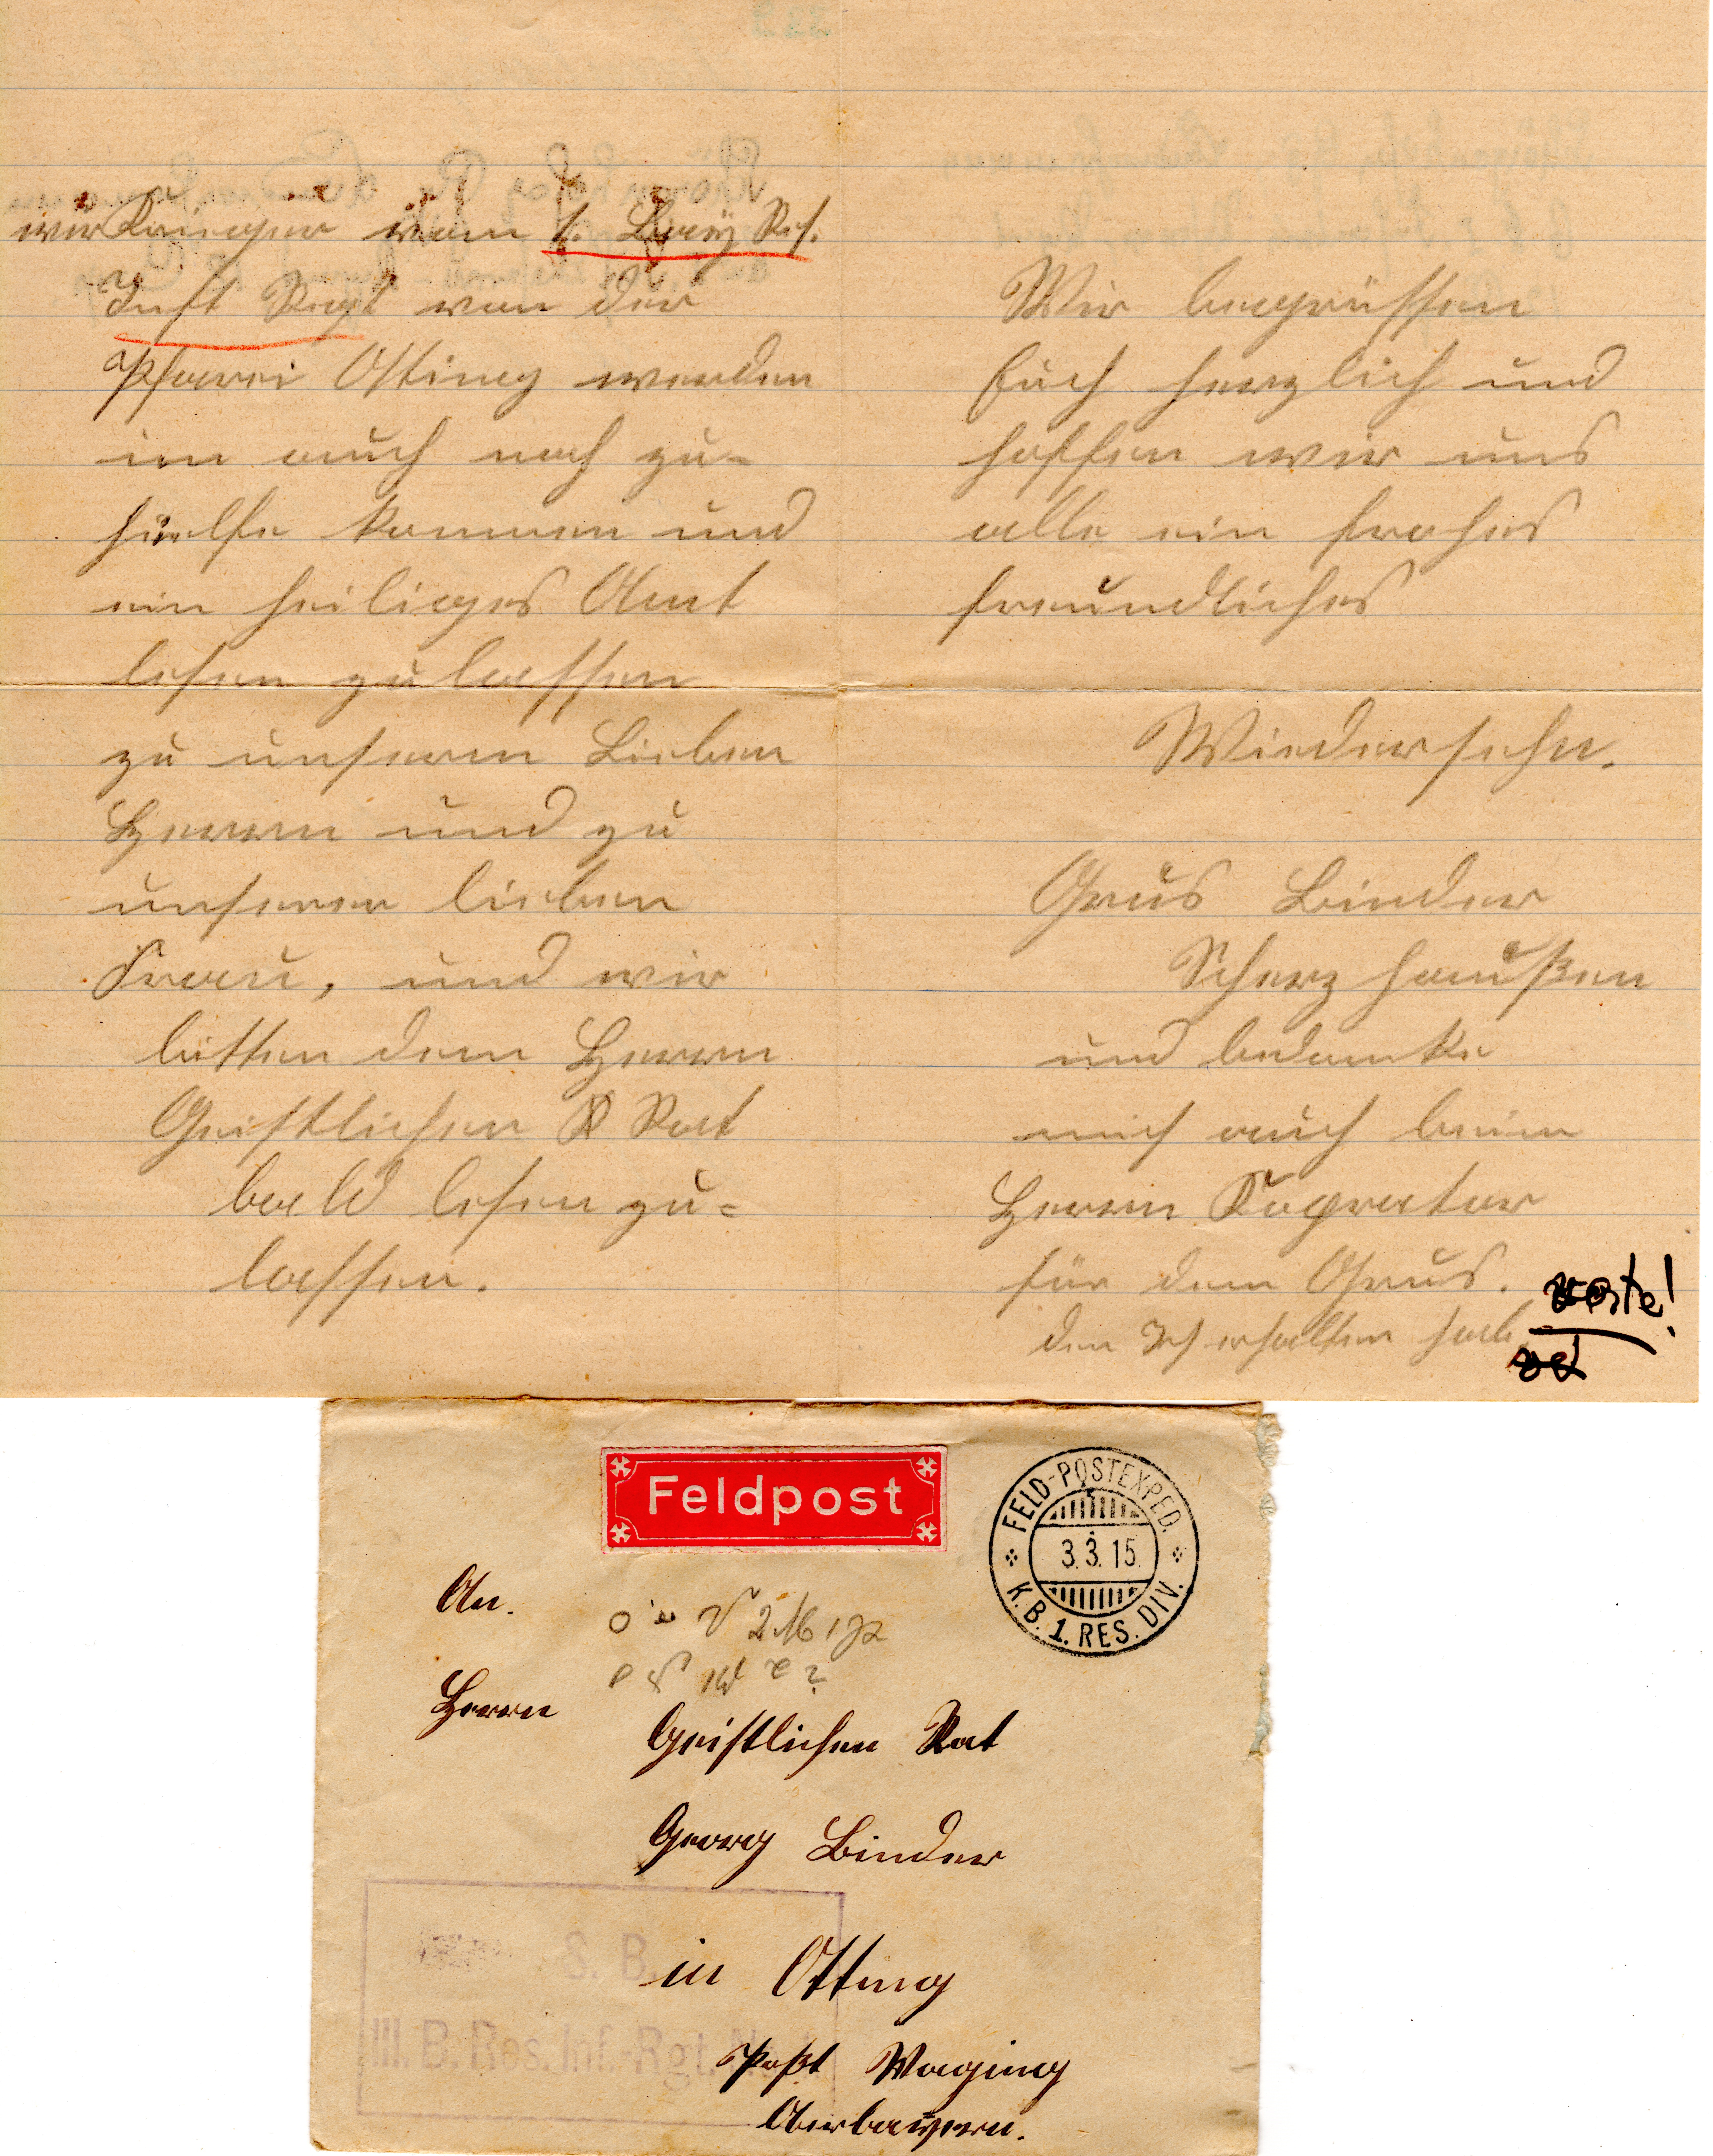 wir Krieger vom 1. Bay Res.
Inft Regt von der
Pfarei Otting werden
im auch noch zu-
hüelfe kommen und
ein heiliges Amt
lesen zu lassen
zu unserm Lieben
Herrn und zu
unserer lieben
Frau, und wir
bitten dem Herrn
Geistlichen Rat
bald lesen zu-
lassen.
Wir begrüssen
Euch herzlich und
hoffen wir uns
alle ein frohes
freundliches
Wiedersehn.
Grüs Binder
Scherzhaußen
und bedanke
mich auch beim
Herrn Koprator
für dem Grus.
den Ich erhalten hab.
Feldpost
FELD-POSTEXPED.
3.3.15.
K.B. 1. RES. DIV.
An.
Herrn
Geistlichen Rat
Georg Binder
in Otting
Poßt Waging
Oberbayern.
S. B.
III. B. Res. Inf.-Rgt. N